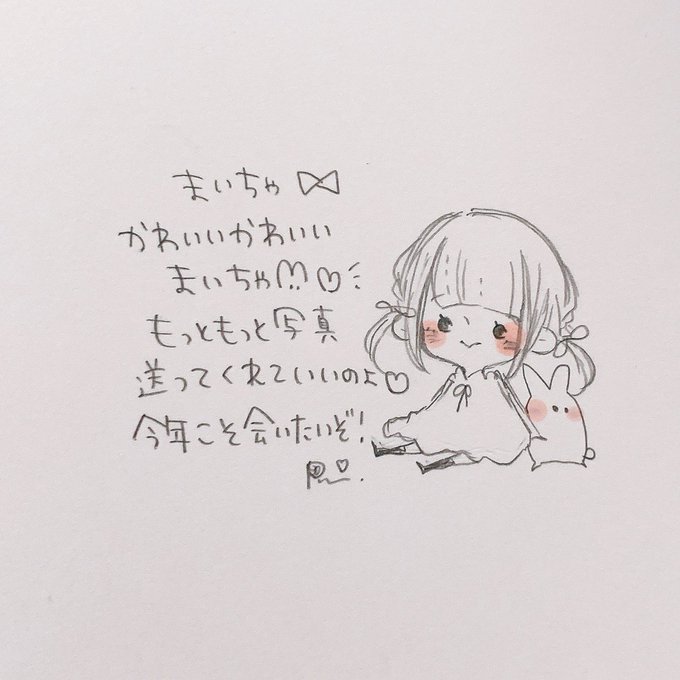 まいちゃ
かわいいかわいい
まいちゃ
もっともっと写真
送ってくれていいのよ♡
今年こそ会いたいぞ!